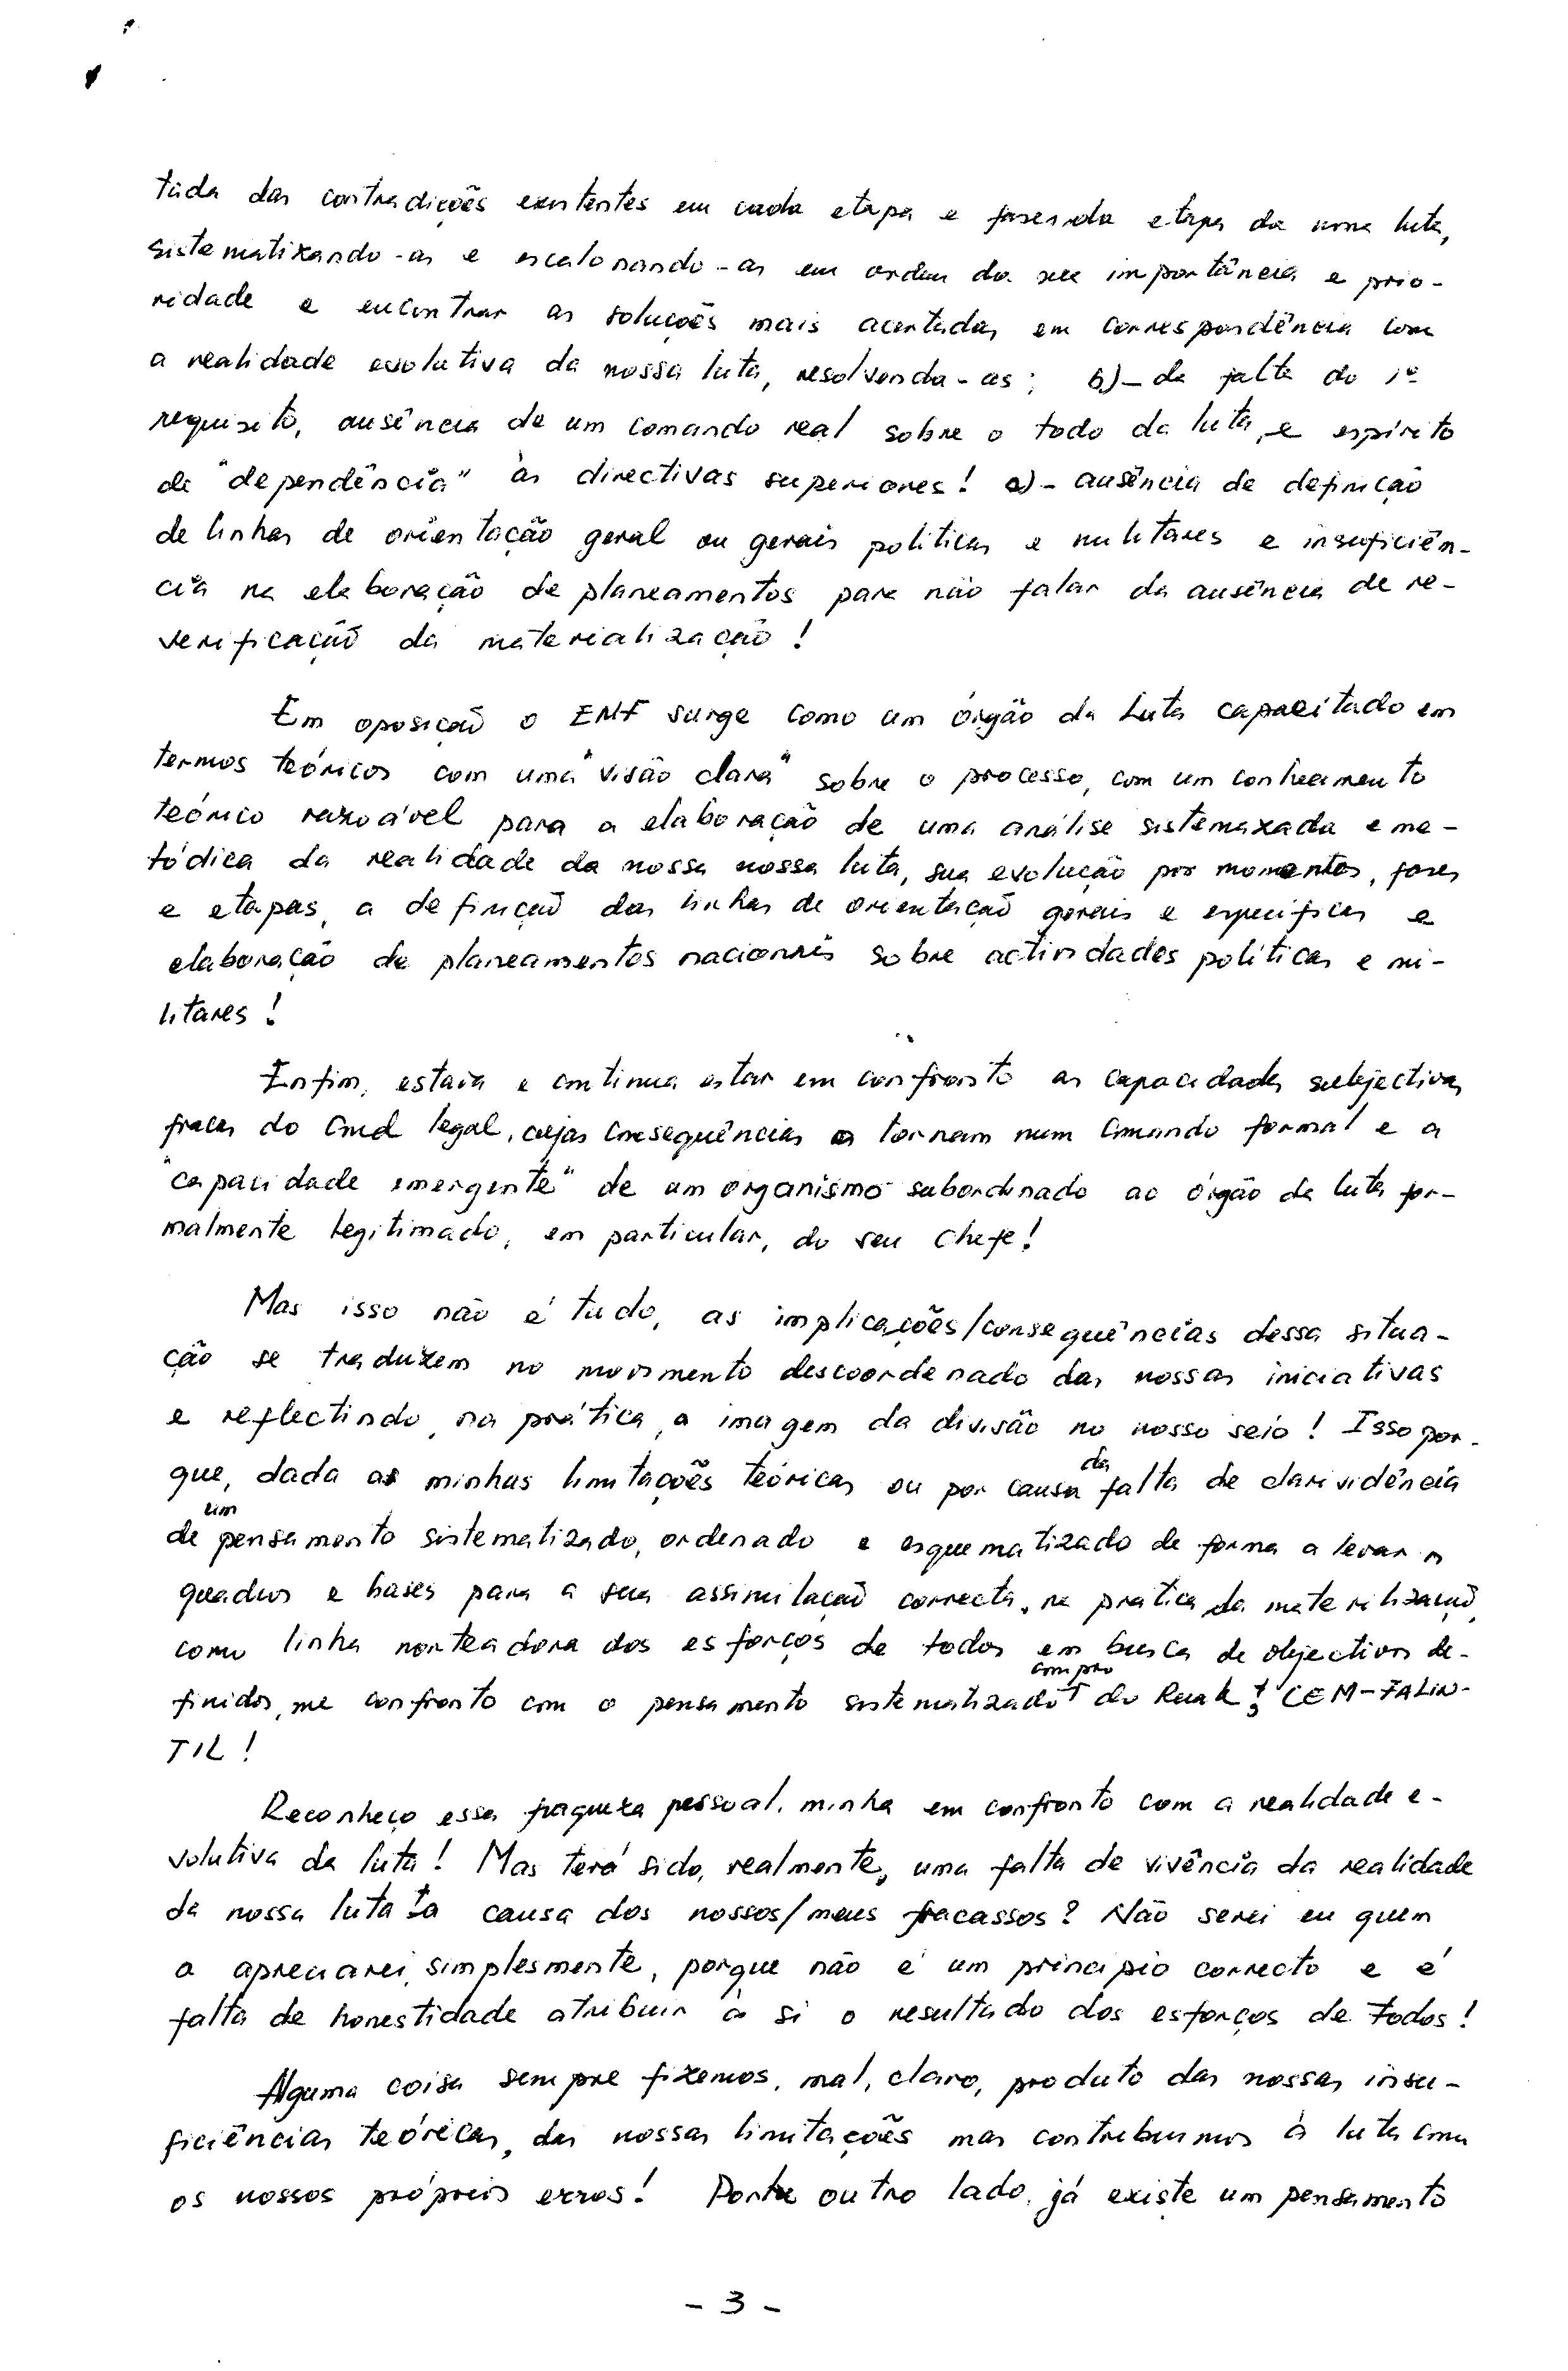 tada das contradições existentes em cada etapa e fase da etapa da nossa luta,
sistematizando-as e escalonando-as em ordem da sua importância e prio-
ridade e encontrar as soluções mais acertadas em correspondência com
a realidade evolutiva da nossa luta, resolvendo-as; b)- da falta do 1º
requisito, ausência de um comando real sobre o todo da luta, e espírito
de "dependência" às directivas superiores! c)- ausência de definição
de linhas de orientação geral ou gerais políticas e militares e insuficiên-
cia na elaboração de planeamentos para não falar da ausência de re-
verificação da materialização!
Em oposição o EMF surge como um órgão da Luta capacitado em
termos teóricos com uma "visão clara" sobre o processo, com um conhecimento
teórico razoável para a elaboração de uma análise sistemazada e me-
tódica da realidade da nossa nossa luta, sua evolução por momentos, fases
e etapas, a definição das linhas de orientação gerais e específicas e
elaboração de planeamentos nacionais sobre actividades políticas e mi-
litares!
Enfim, estava e continua estar em confronto as capacidades subjectivas
fracas do Cmd legal, cujas consequências o tornam num comando formal e a
"capacidade emergente" de um organismo subordinado ao órgão da luta for-
malmente legitimado, em particular, do seu chefe!
Mas isso não é tudo, as implicações/consequências dessa situa-
ção se traduzem no movimento descoordenado das nossas iniciativas
e reflectindo, na prática, a imagem da divisão no nosso seio! Isso por-
que, dada as minhas limitações teóricas ou por causa da falta de clarividência
de um pensamento sistematizado, ordenado e esquematizado de forma a levar os
quadros e bases para a sua assimilação correcta, na prática da materialização,
como linha norteadora dos esforços de todos em busca de objectivos de-
finidos, me confronto com o pensamento sistematizado do Ruak, CEM-FALIN-
TIL!
Reconheço essa fraqueza pessoal, minha em confronto com a realidade e-
volutiva da luta! Mas terá sido, realmente, uma falta de vivência da realidade
da nossa luta a causa dos nossos/meus fracassos? Não serei eu quem
a apreciarei, simplesmente, porque não é um princípio correcto e é
falta de honestidade atribuir à si o resultado dos esforços de todos!
Alguma coisa sempre fizemos, mal, claro, produto das nossas insu-
ficiências teóricas, das nossas limitações mas contribuimos à luta com
os nossos próprios erros! Por outro lado, já existe um pensamento
- 3 -